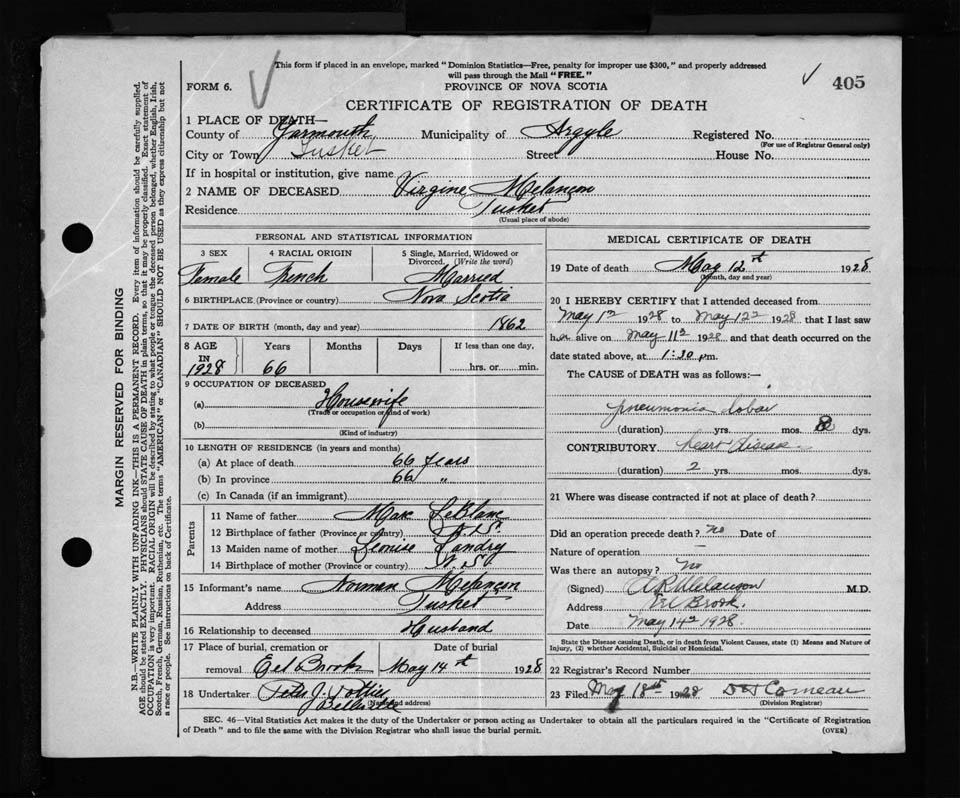 This form if placed in an envelope, marked "Dominion Statistics—Free, penalty for improper use $300," and properly addressed
will pass through the Mail "FREE."
FORM 6.
PROVINCE OF NOVA SCOTIA
405
CERTIFICATE OF REGISTRATION OF DEATH
1 PLACE OF DEATH—
County of Yarmouth Municipality of Argyle Registered No.
(For use of Registrar General only)
City or Town Tusket Street House No.
If in hospital or institution, give name
2 NAME OF DECEASED Virgine Melançon
Residence Tusket
(Usual place of abode)
PERSONAL AND STATISTICAL INFORMATION
3 SEX 4 RACIAL ORIGIN 5 Single, Married, Widowed or
Divorced. (Write the word)
Female French Married
6 BIRTHPLACE (Province or country) Nova Scotia
7 DATE OF BIRTH (month, day and year) 1862
8 AGE Years Months Days If less than one day,
IN
1928 66 hrs. or min.
9 OCCUPATION OF DECEASED
(a) Housewife
(Trade or occupation or kind of work)
(b)
(Kind of industry)
10 LENGTH OF RESIDENCE (in years and months)
(a) At place of death 66 years
(b) In province 66 "
(c) In Canada (if an immigrant)
Parents
11 Name of father Marc LeBlanc
12 Birthplace of father (Province or country) N.S.
13 Maiden name of mother Leonise Landry
14 Birthplace of mother (Province or country) N.S.
15 Informant's name Norman Melançon
Address Tusket
16 Relationship to deceased Husband
17 Place of burial, cremation or Date of burial
removal Eel Brook May 14th 1928
18 Undertaker Peter J. Pottier
Belleville
(Name and address)
MEDICAL CERTIFICATE OF DEATH
19 Date of death May 12th 1928
(Month, day and year)
20 I HEREBY CERTIFY that I attended deceased from
May 1st 1928 to May 12th 1928 that I last saw
her alive on May 11th 1928 and that death occurred on the
date stated above, at 1:30 pm.
The CAUSE of DEATH was as follows:—
pneumonia lobar
(duration) yrs. mos. dys.
CONTRIBUTORY heart disease
(duration) 2 yrs. mos. dys.
21 Where was disease contracted if not at place of death?
Did an operation precede death? no Date of
Nature of operation —
Was there an autopsy? No
(Signed) A R Melanson M.D.
Address Eel Brook.
Date May 14th 1928
State the Disease causing Death, or in death from Violent Causes, state (1) Means and Nature of
Injury, (2) whether Accidental, Suicidal or Homicidal.
22 Registrar's Record Number
23 Filed May 18th 1928 Comeau
(Division Registrar)
SEC. 46—Vital Statistics Act makes it the duty of the Undertaker or person acting as Undertaker to obtain all the particulars required in the "Certificate of Registration
of Death" and to file the same with the Division Registrar who shall issue the burial permit. (OVER)
MARGIN RESERVED FOR BINDING
N.B.—WRITE PLAINLY WITH UNFADING INK—THIS IS A PERMANENT RECORD. Every item of information should be carefully supplied.
AGE should be stated EXACTLY. PHYSICIANS should STATE CAUSE OF DEATH in plain terms, so that it may be properly classified. Exact statement of
OCCUPATION is very important. RACIAL ORIGIN will be described by stating to what people or tongue the deceased person belonged, whether English, Irish,
Scotch, French, German, Russian, Ruthenian, etc. The terms "AMERICAN" or "CANADIAN" SHOULD NOT BE USED as they express citizenship but not
a race or people. See instructions on back of Certificate.